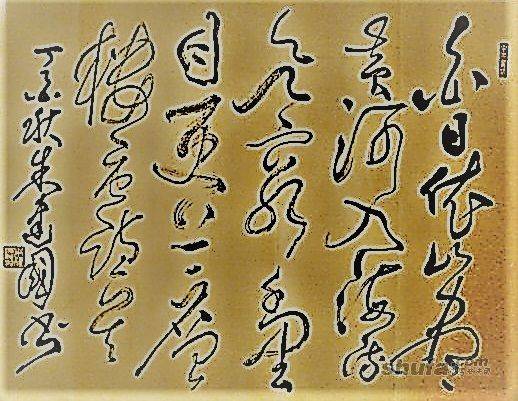 白日依山尽
黄河入海流
欲穷千里
目更上一层
楼 唐诗
丁亥秋朱建国书